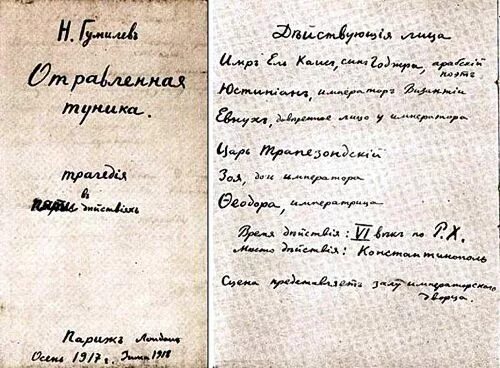 Н. Гумилевъ
Отравленная
туника.
трагедія
въ
дѣйствіяхъ
Парижъ Лондонъ
Осень 1917 г. Зима 1918
Дѣйствующія лица
Имръ Ель Каисъ, сынъ Годжра, арабскій
поэтъ
Юстиніанъ, императоръ Византіи
Евнухъ, довѣренное лицо у императора
Царь Трапезондскій
Зоя, дочь императора
Ѳеодора, императрица
Время дѣйствія: VI вѣкъ по Р. Х.
Мѣсто дѣйствія: Константинополь
Сцена представляетъ залу императорскаго
дворца.